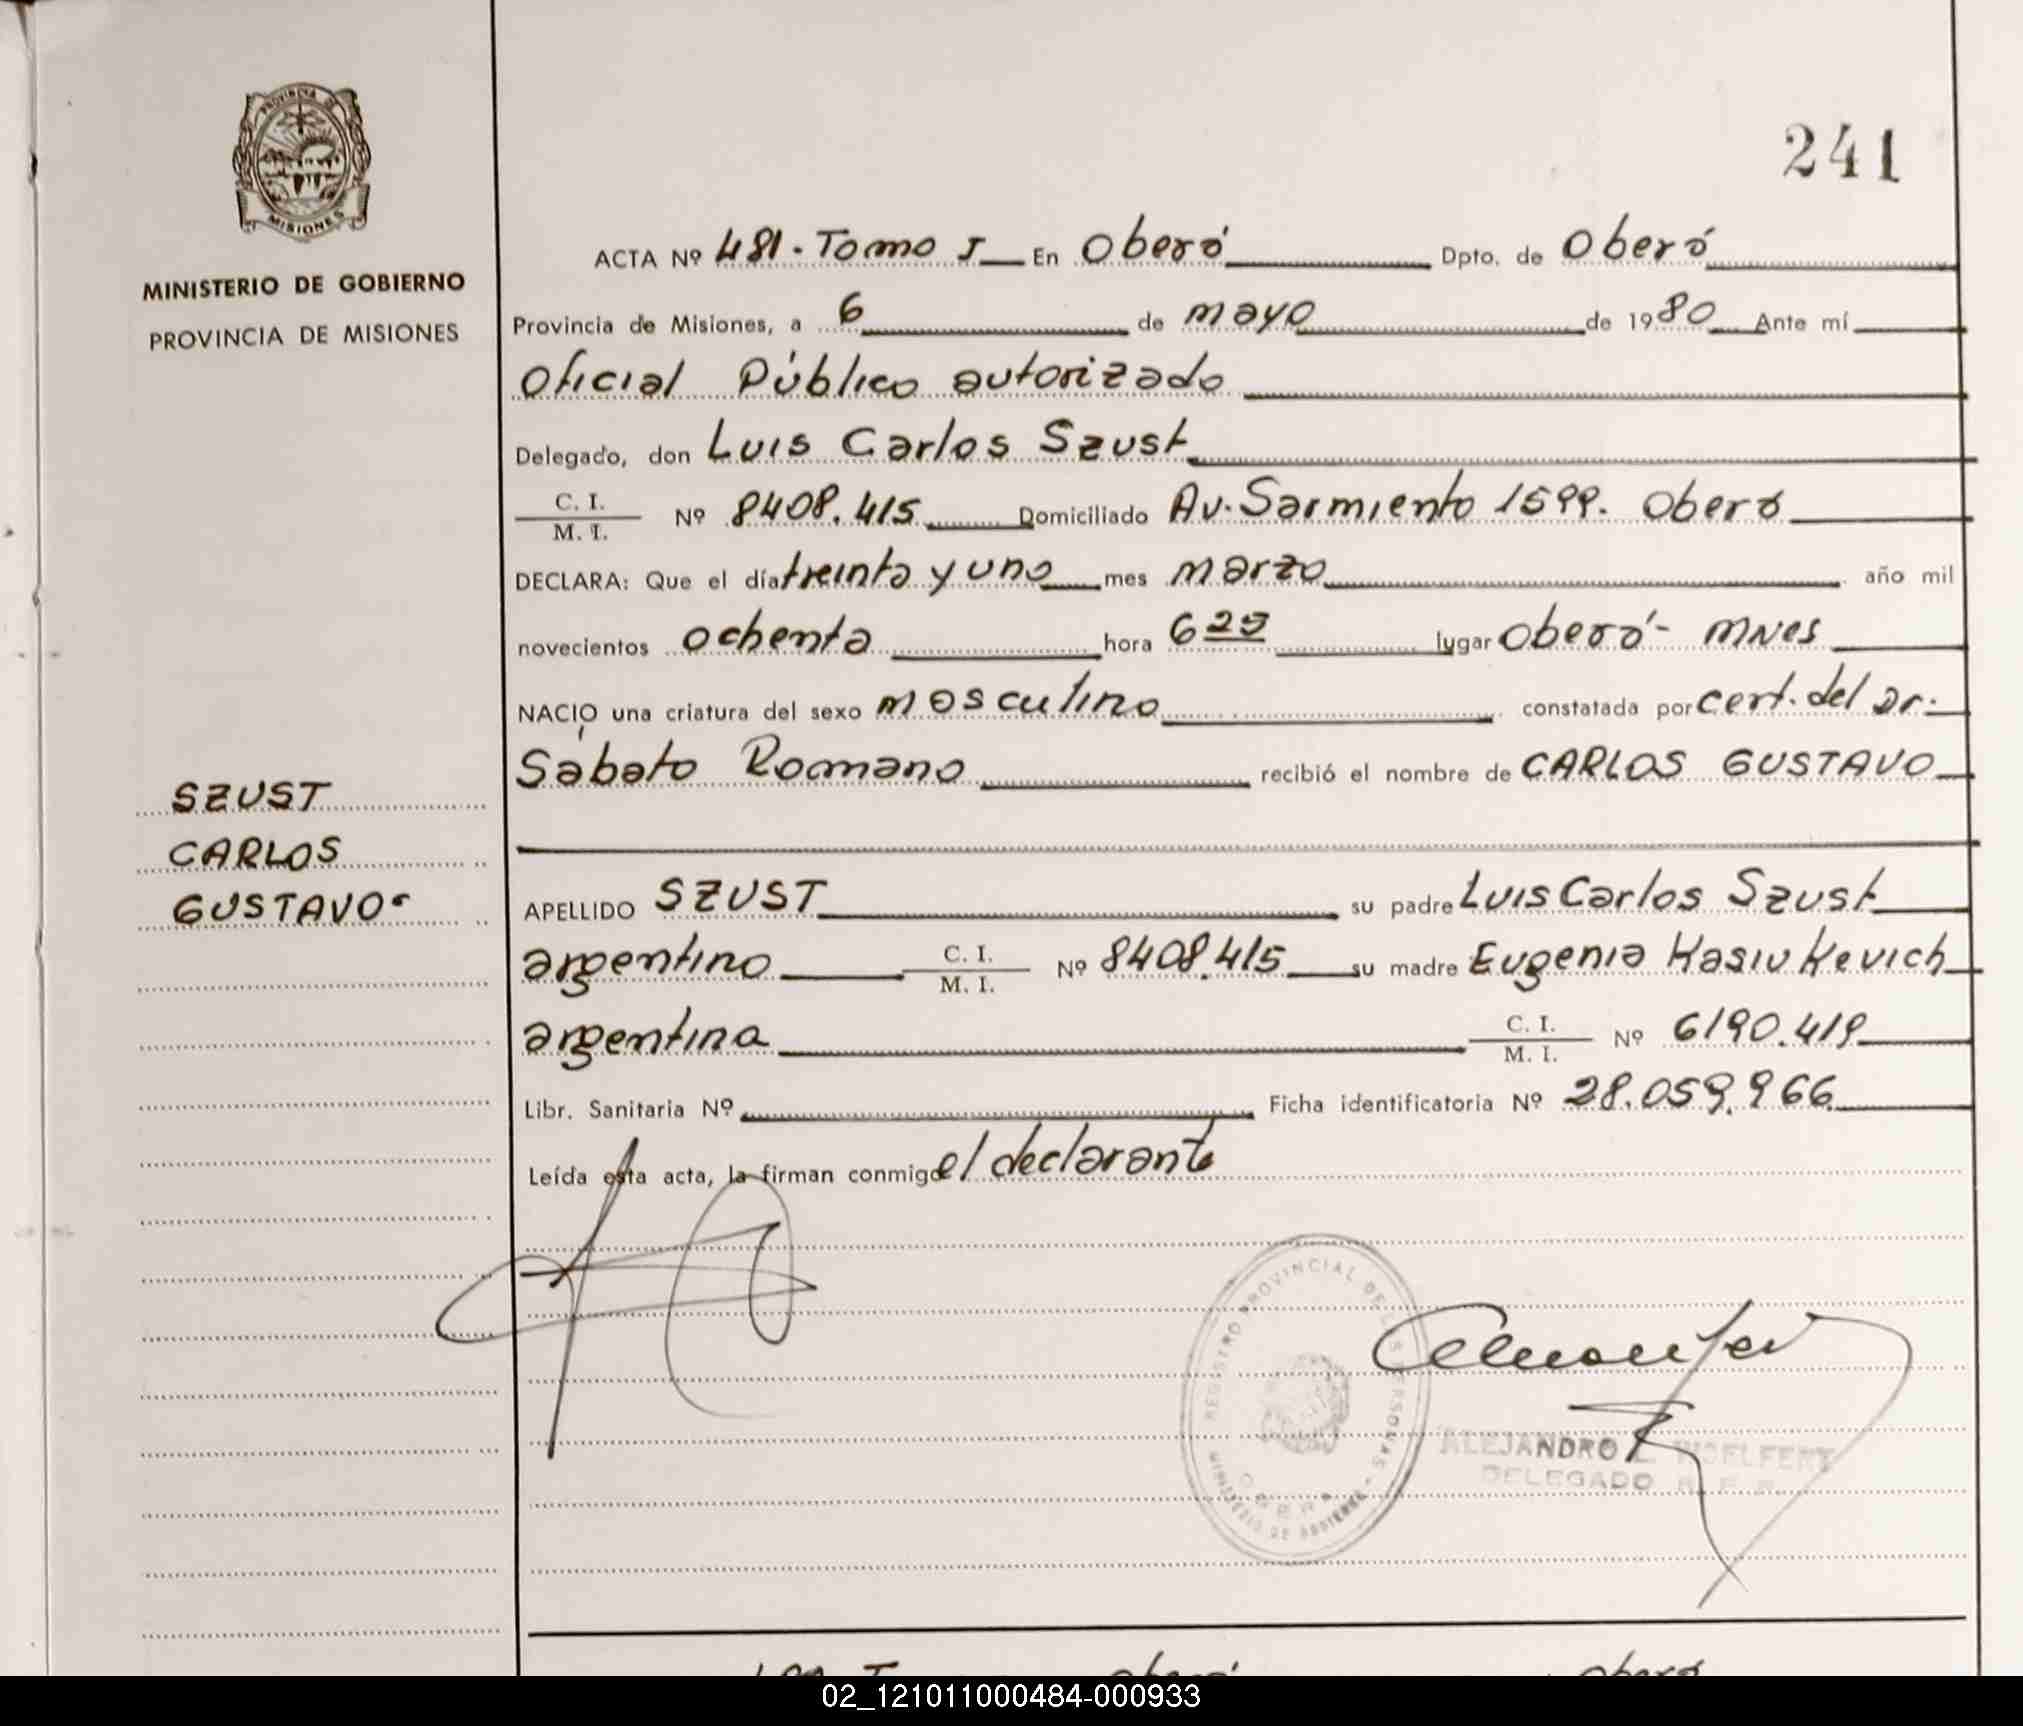 PROVINCIA DE
MISIONES
MINISTERIO DE GOBIERNO
PROVINCIA DE MISIONES
241
ACTA Nº 481 - Tomo I En Oberá Dpto. de Oberá
Provincia de Misiones, a 6 de mayo de 1980 Ante mí
Oficial Público autorizado
Delegado, don Luis Carlos Szust
C. I.
M. I.
Nº 8408.415 Domiciliado Av. Sarmiento 1599. Oberá
DECLARA: Que el día treinta y uno mes marzo año mil
novecientos ochenta hora 6 lugar Oberá - MNES
NACIO una criatura del sexo masculino constatada por cert. del Dr.
Sábato Romano recibió el nombre de CARLOS GUSTAVO
SZUST
CARLOS
GUSTAVO
APELLIDO SZUST su padre Luis Carlos Szust
argentino C. I. M. I. Nº 8408.415 su madre Eugenia Kasiukevich
argentina C. I. M. I. Nº 6190.419
Libr. Sanitaria Nº Ficha identificatoria Nº 28.059.966
Leída esta acta, la firman conmigo el declarante
REGISTRO PROVINCIAL DE LAS PERSONAS -
MINISTERIO DE GOBIERNO -
OBERA
ALEJANDRO WOELFERT
DELEGADO R. P. P.
Oberá Oberá
02_121011000484-000933